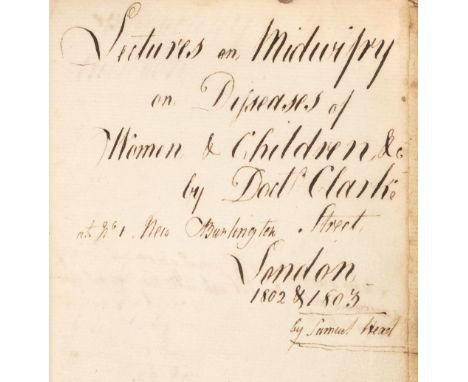 Lectures on Midwifry
on Diseases of
Women & Children, &c
by Doctr. Clarke
at No 1 New Burlington Street,
London,
1802 & 1803
by Samuel